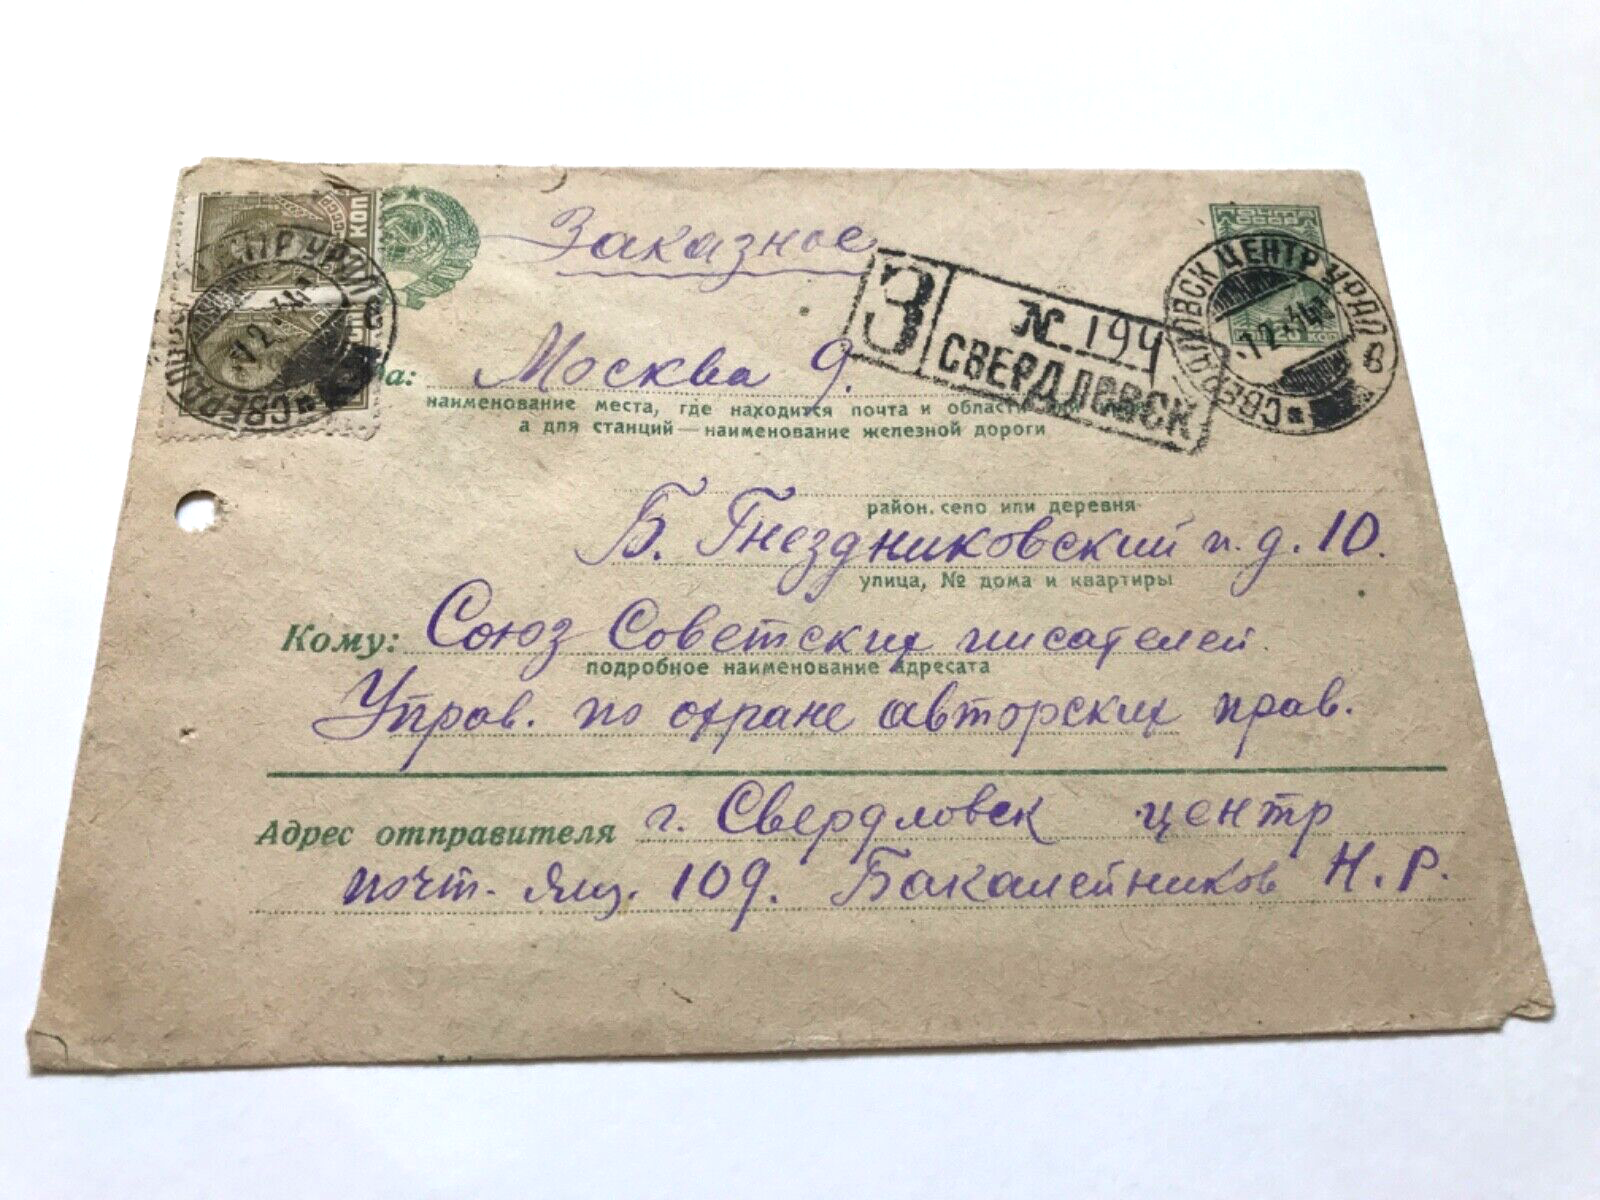 Заказное
ПОЧТА
СССР
КОП
З
№ 194
СВЕРДЛОВСК
СВЕРДЛОВСК ЦЕНТР УРАЛ
в
Москва 9.
наименование места, где находится почта и области или
а для станций—наименование железной дороги
район, село или деревня
Б. Гнездниковский п. д. 10.
улица, № дома и квартиры
Кому: Союз Советских писателей.
подробное наименование адресата
Управ. по охране авторских прав.
Адрес отправителя г. Свердловск центр
почт. ящ. 109. Бакалейников Н.Р.